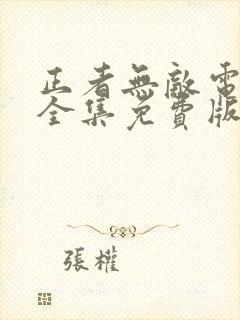 正者無敵電
全集免費版
張權